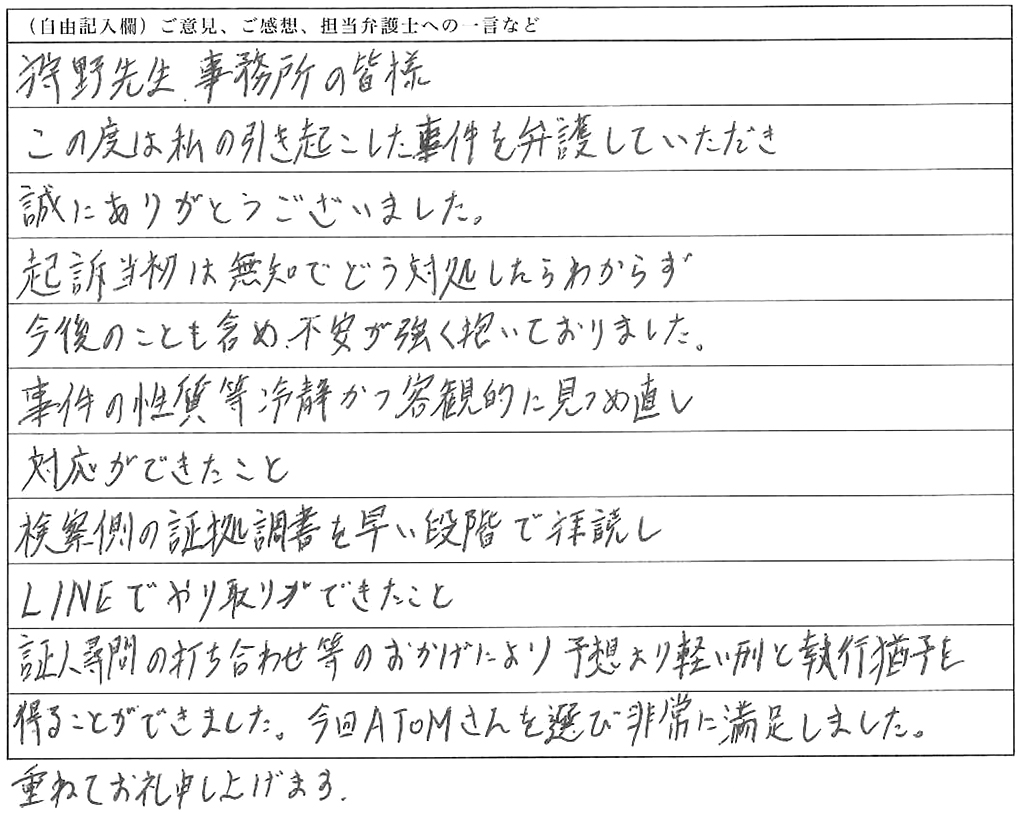 （自由記入欄）ご意見、ご感想、担当弁護士への一言など
狩野先生、事務所の皆様
この度は私の引き起こした事件を弁護していただき
誠にありがとうございました。
起訴当初は無知でどう対処したらわからず
今後のことも含め、不安が強く抱いておりました。
事件の性質等冷静かつ客観的に見つめ直し
対応ができたこと
検察側の証拠調書を早い段階で拝読し
LINEでやり取りができたこと
証人尋問の打ち合わせ等のおかげにより予想より軽い刑と執行猶予を
得ることができました。今回ATOMさんを選び非常に満足しました。
重ねてお礼申し上げます.